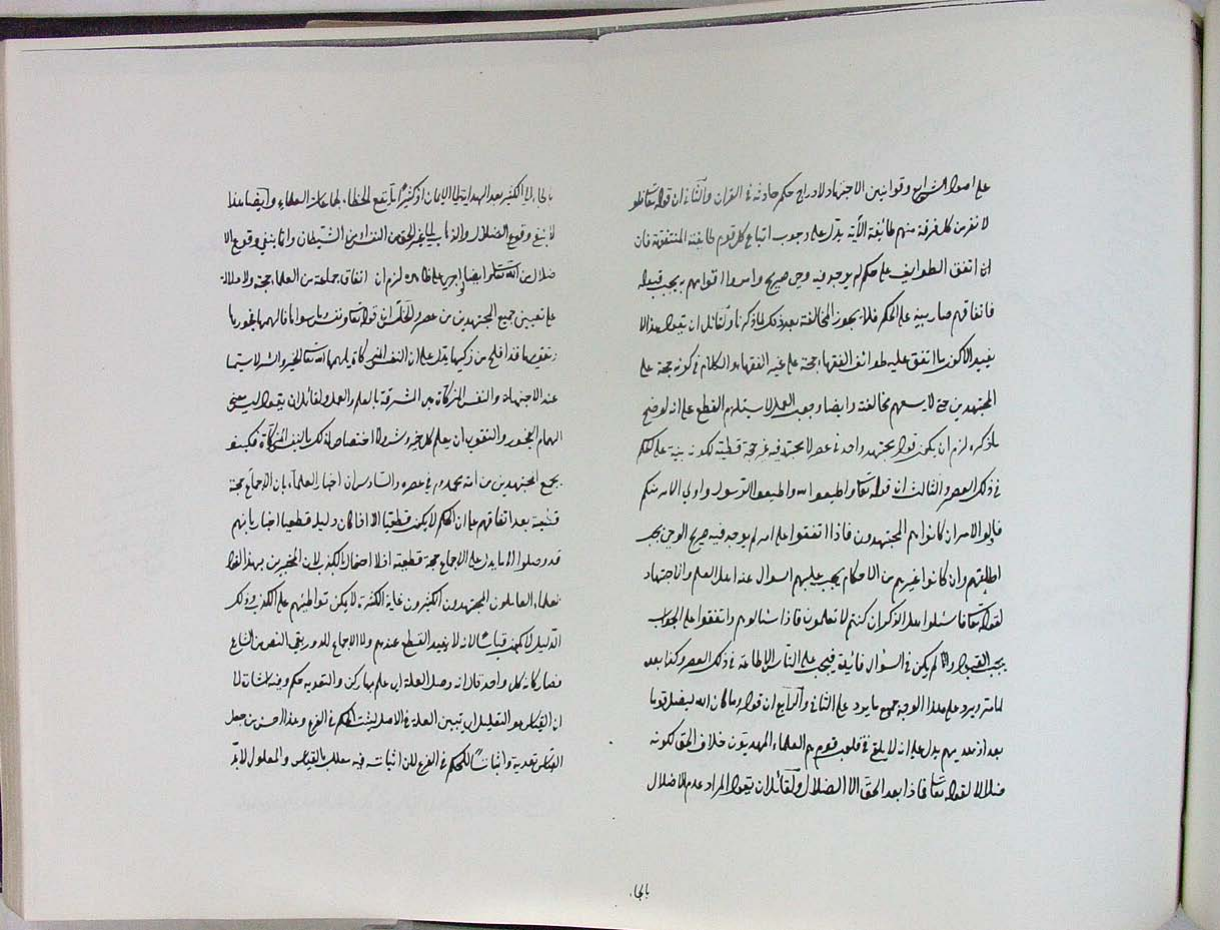 على اصول الشرايع وقوانين الاجتهاد لادراج حكم حادثة في القرآن والثاني ان قوله تعالى فلو
لا نفر من كل فرقة منهم طائفة الآية يدل على وجوب اتباع كل قوم طايفة المتفقهة فان
ان اتفق الطوايف على حكم لم يوجد فيه وحي صريح وامروا اقوامهم به يجب قبوله
فاتفاقهم صار بينة على الحكم فلا يجوز المخالفة بعد ذلك لما ذكرنا ولقائل ان يقول هذا لا
يفيد الا كون ما اتفق عليه طوائف الفقهاء حجة على غير الفقهاء والكلام في كونه حجة على
المجتهدين حتى لا يسعهم مخالفته وايضا وجوب العمل لا يستلزم القطع على انه لو صح
ما ذكره لزم ان يكون قول مجتهد واحد في عصر لا مجتهد فيه غيره حجة قطعية لكونه بينة على الحكم
في ذلك العصر والثالث ان قوله تعالى واطيعوا الله واطيعوا الرسول واولي الامر منكم
فاولوا الامر ان كانوا هم المجتهدون فاذا اتفقوا على امر لم يوجد فيه صريح الوحي يجب
اطاعتهم وان كانوا غيرهم من الاحكام يجب عليهم السؤال عند اهل العلم والاجتهاد
لقوله تعالى فاسئلوا اهل الذكر ان كنتم لا تعلمون فاذا سئالوهم واتفقوا على الجواب
يجب القبول والا لم يكن في السؤال فائدة فيجب على الناس الاطاعة في ذلك العصر وكذا بعده
لما مر ويرد على هذا الوجه جميع ما يورد على الثاني والرابع ان قوله وما كان الله ليضل قوما
بعد اذ هديهم يدل على انه لا يلقي في قلوب قوم هم العلماء المهديون خلاف الحق لكونه
ضلالا لقوله تعالى فماذا بعد الحق الا الضلال ولقائل ان يقول المراد عدم الاضلال
بالجا
بالجاء الى الكفر بعد الهداية الى الايمان اذ كثيرا ما يقع الخطاء لجماعات العلماء وايضا هذا
لا ينفي وقوع الضلال والذهاب الى غير الحق من النفس او من الشيطان وانما ينفي وقوع الا
ضلال من الله تعالى وايضا لو اجرى على ظاهره لزم ان اتفاق جماعة من العلماء حجة ولا دلالة
على تعيين جميع المجتهدين من عصر والخامس ان قوله تعالى ونفس وما سواها فالهمها فجورها
وتقويها قد افلح من زكيها يدل على ان النفس المزكاة يلهمها الله تعالى الخير والشر لا سيما
عند الاجتهاد والنفس المزكاة هي المشرفة بالعلم والعمل ولقائل ان يقول ليس معنى
الهام الفجور والتقوى ان يعلم كل خير وشر ولا اختصاص لذلك بالنفس المزكاة فكيف
بجميع المجتهدين من امة محمد وم في عصره والسادس ان اخبار العلماء بان الاجماع حجة
قطعية بعد اتفاقهم على ان الحكم لا يكون قطعيا الا اذا كان دليله قطعيا اخبار بانهم
قد وصلوا الى ما يدل على الاجماع حجة قطعية اذ لا احتمال الكذب لان المخبرين بهذا القول
العلماء العاملون المجتهدون الكثيرون غاية الكثرة لا يمكن تواطئهم على الكذب وذلك
الدليل لا يكون قياسا لانه لا يفيد القطع عندهم ولا الاجماع للدور بقي النص من الشارع
فصار كانه كل واحد قال انه وصل
ان القياس هو التعليل اي تبيين العلة في الاصل ليثبت الحكم في الفرع وهذا احسن من جعل
القياس تعدية واثباتا للحكم في الفرع لان اثباته فيه معلل بالقياس والمعلول لا بد